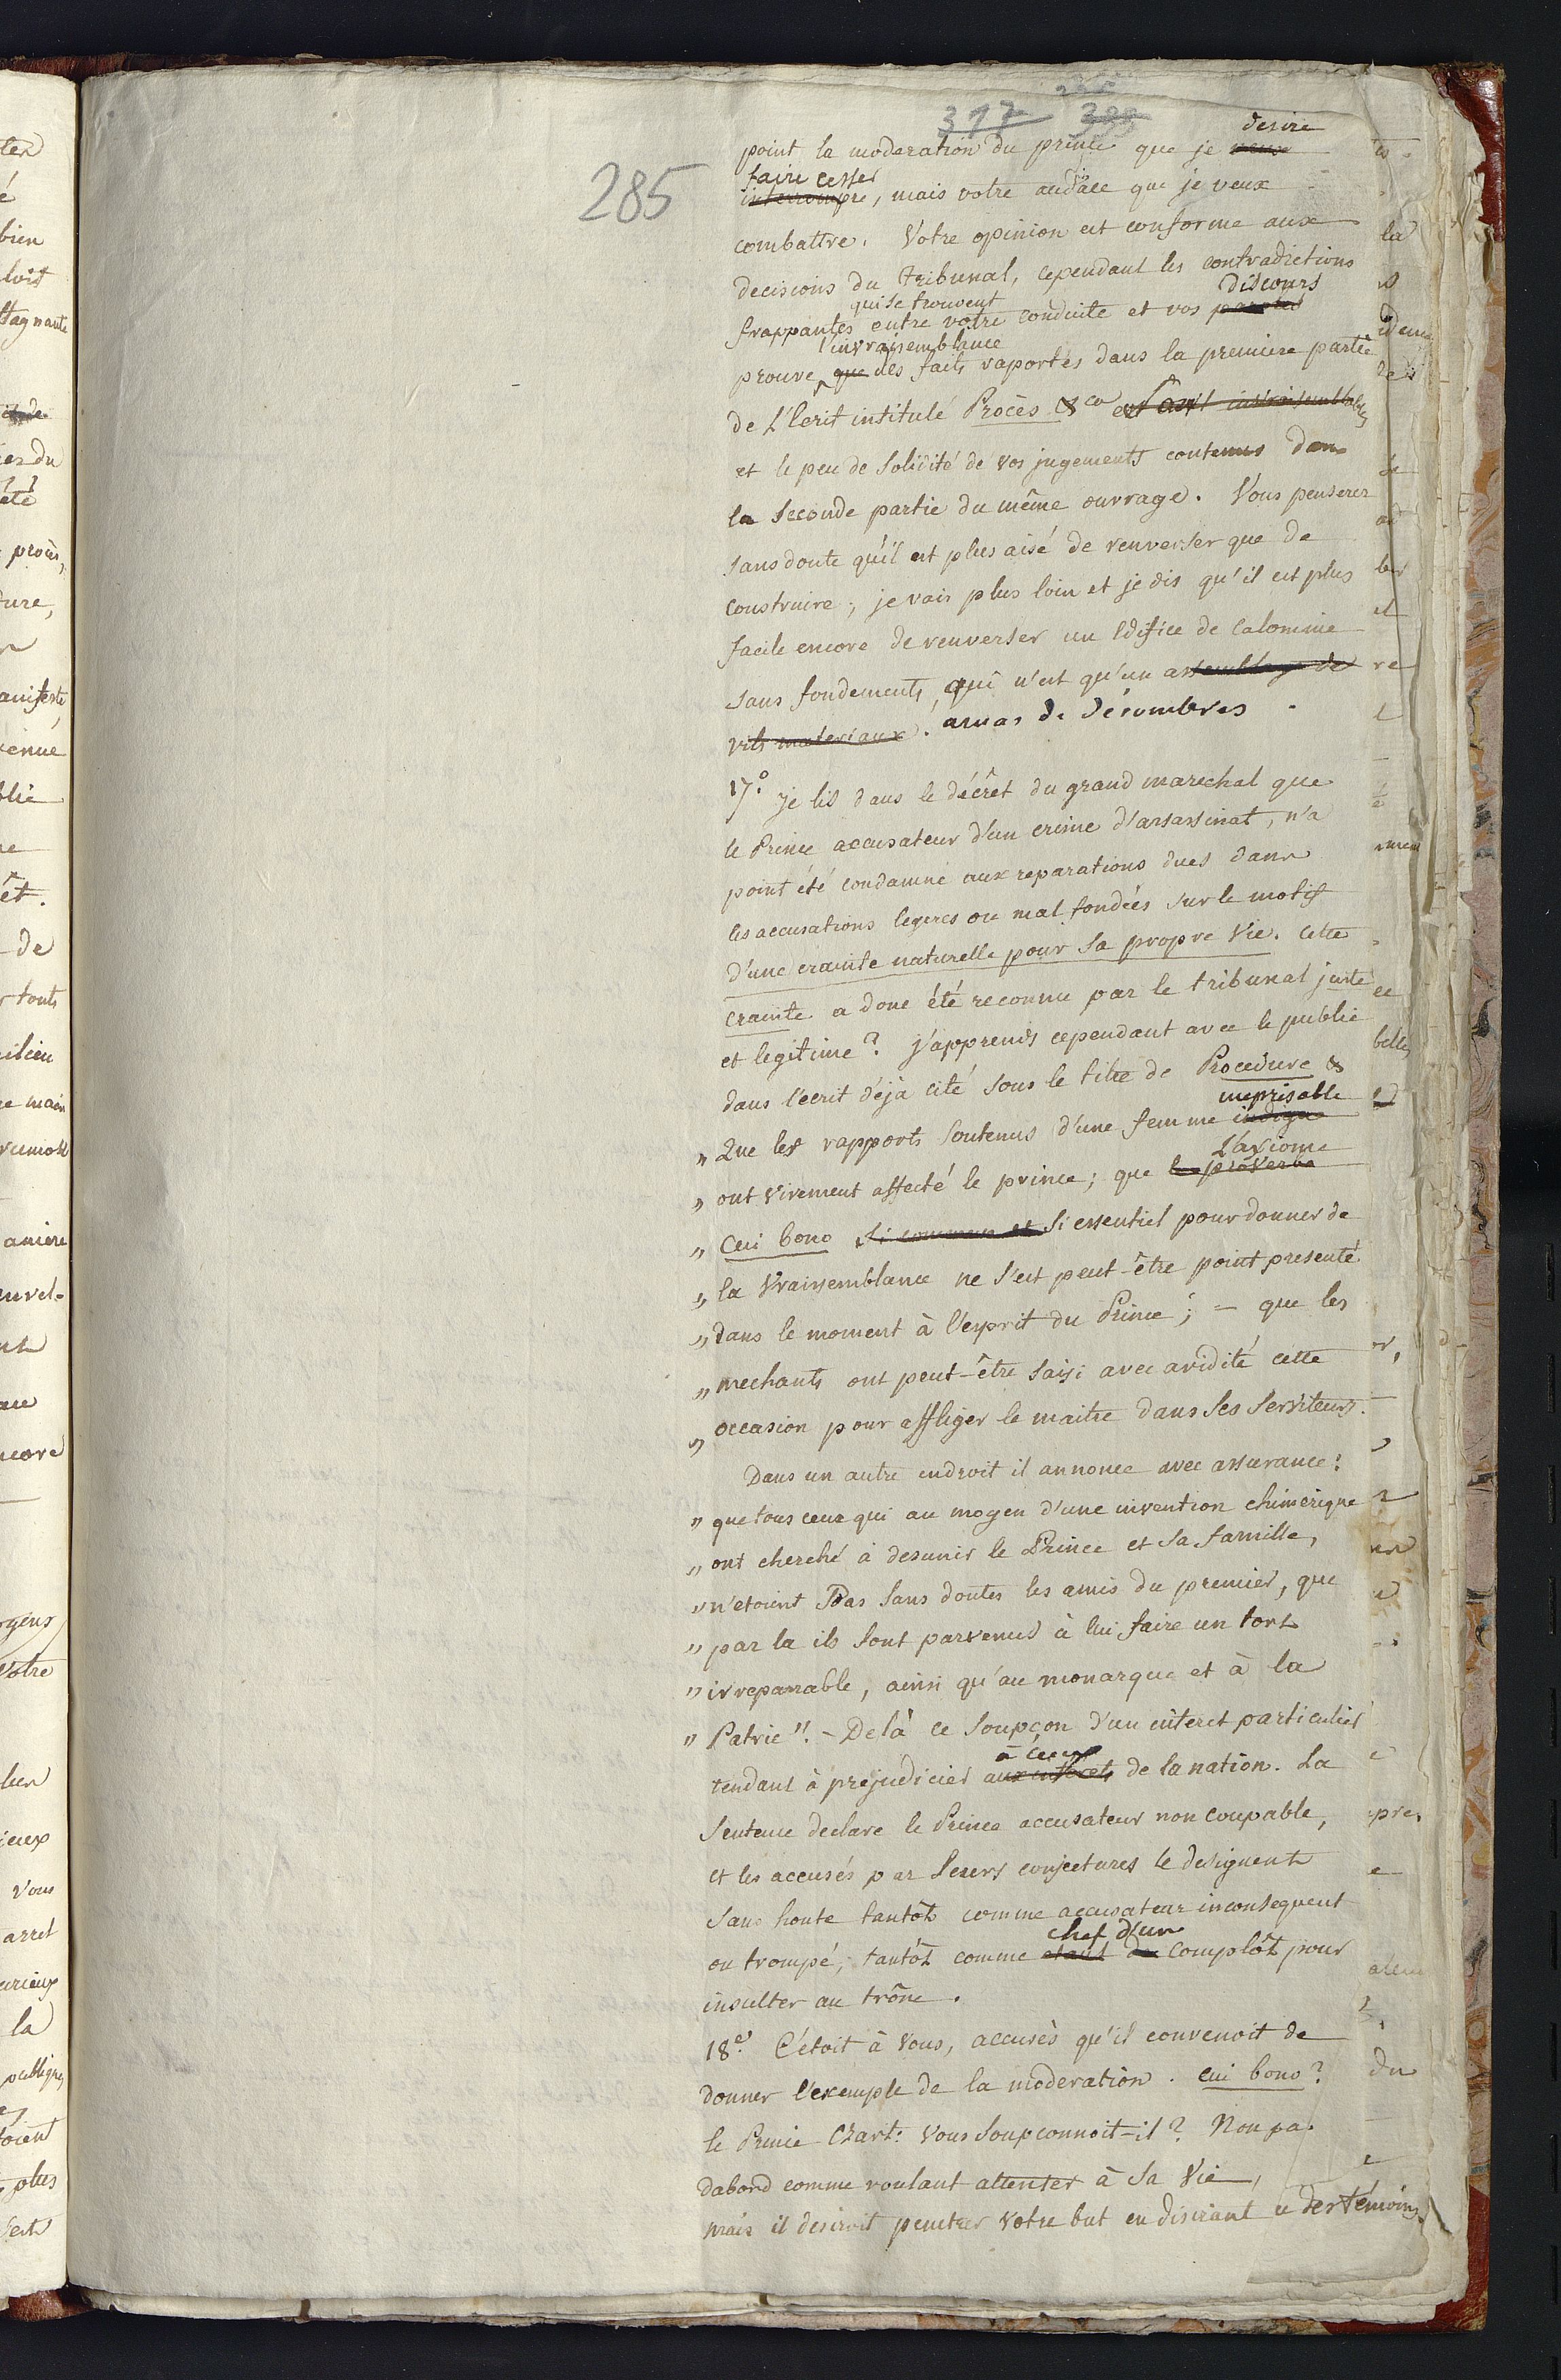 317 388
285
desire
point la moderation du prince que je veux
faire cesser
interrompre, mais votre audace que je veux
combattre. Votre opinion est conforme aux
decisions du tribunal, cependant les contradictions
qui se trouvent discours
frappantes entre votre conduite et vos paroles
l'invraissemblance
prouve que des faits raportés dans la premiere partie
de L'Ecrit intitulé Procès &ca est invraisemblable,
et le peu de solidité de vos jugements contenus dans
la seconde partie du même ouvrage. Vous penserez
sans doute qu'il est plus aisé de renverser que de
construire; je vais plus loin et je dis qu'il est plus
facile encore de renverser un Edifice de Calomnie
sans fondements, qui n'est qu'un assemblage de
vils materiaux. amas de décombres.
17.° je lis dans le décrêt du grand marechal que
le Prince accusateur d'un crime d'assassinat, n'a
point été condamné aux reparations dues dans
les accusations legeres ou mal fondées sur le motif
d'une crainte naturelle pour sa propre Vie. Cette
crainte a donc été reconnue par le tribunal juste
et legitime? j'apprends cependant avec le public
dans l'ecrit déjà cité sous le titre de Procedure &
meprisable
" Que les rapports soutenus d'une femme indigne
L'axiome
" ont vivement affecté le prince; que le proverbe
" Cui bono si commun et si essentiel pour donner de
" la Vraissemblance ne s'est peut-être point presenté
" dans le moment à l'esprit du Prince; – que les
" mechants ont peut-être saisi avec avidité cette
" occasion pour affliger le maitre dans ses Serviteurs.
Dans un autre endroit il annonce avec assurance:
" que tous ceux qui au moyen d'une invention chimerique
" ont cherché à desunir le Prince et sa famille,
" n'etoient Pas sans doutes les amis du premier, que
" par la ils sont parvenus à lui faire un tort
" irreparrable, ainsi qu'au monarque et à la
" Patrie". – Delà ce soupçon d'un interet particulier
à ceux
tendant à préjudicier aux interets de la nation. La
Sentence declare le Prince accusateur non coupable,
et les accusés par leurs conjectures le designent
sans honte tantôt comme accusateur inconsequent
chef d'un
ou trompé, tantôt comme etant du complôt pour
insulter au trône.
18° C'étoit à vous, accusés qu'il convenoit de
donner l'exemple de la moderation. cui bono?
le Prince Czart: vous soupconnoit-il? Non pas
dabord comme voulant attenter à sa Vie,
mais il desiroit penetrer votre but en desirant des témoins.